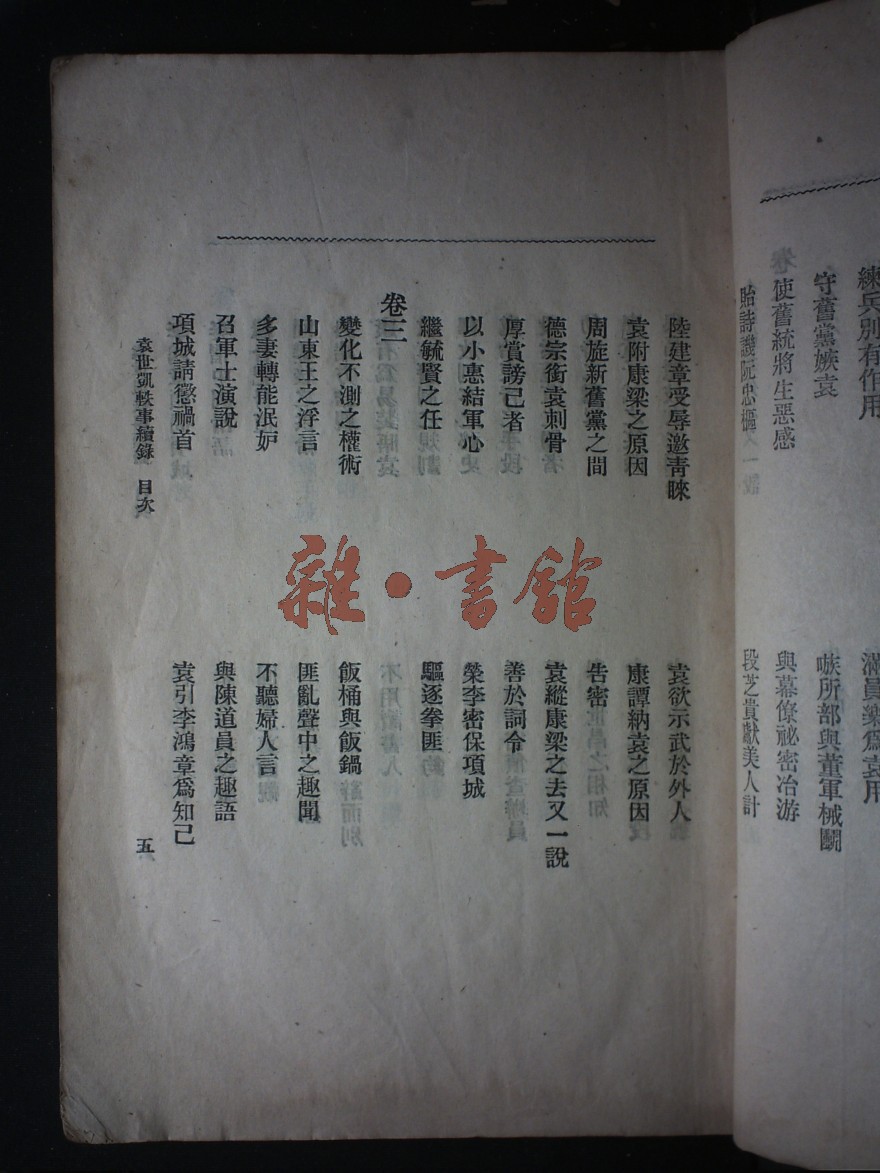 練兵別有作用
滿員樂爲袁用
守舊黨嫉袁
嗾所部與董軍械鬭
使舊統將生惡感
與幕僚祕密冶游
貽詩譏阮忠樞
段芝貴獻美人計
陸建章受辱邀靑睞
袁欲示武於外人
袁附康梁之原因
康譚納袁之原因
周旋新舊黨之間
告密
德宗銜袁刺骨
袁縱康梁之去又一說
厚賞謗己者
善於詞令
以小惠結軍心
榮李密保項城
繼毓賢之任
驅逐拳匪
卷三
變化不測之權術
飯桶與飯鍋
山東王之浮言
匪亂聲中之趣聞
多妻轉能泯妒
不聽婦人言
召軍士演說
與陳道員之趣語
項城請懲禍首
袁引李鴻章爲知己
袁世凱軼事續錄 目次 五
雜·書館